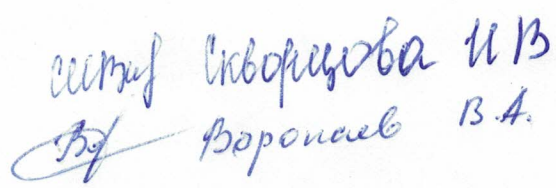 Скворцова И В
Воропаев В.А.